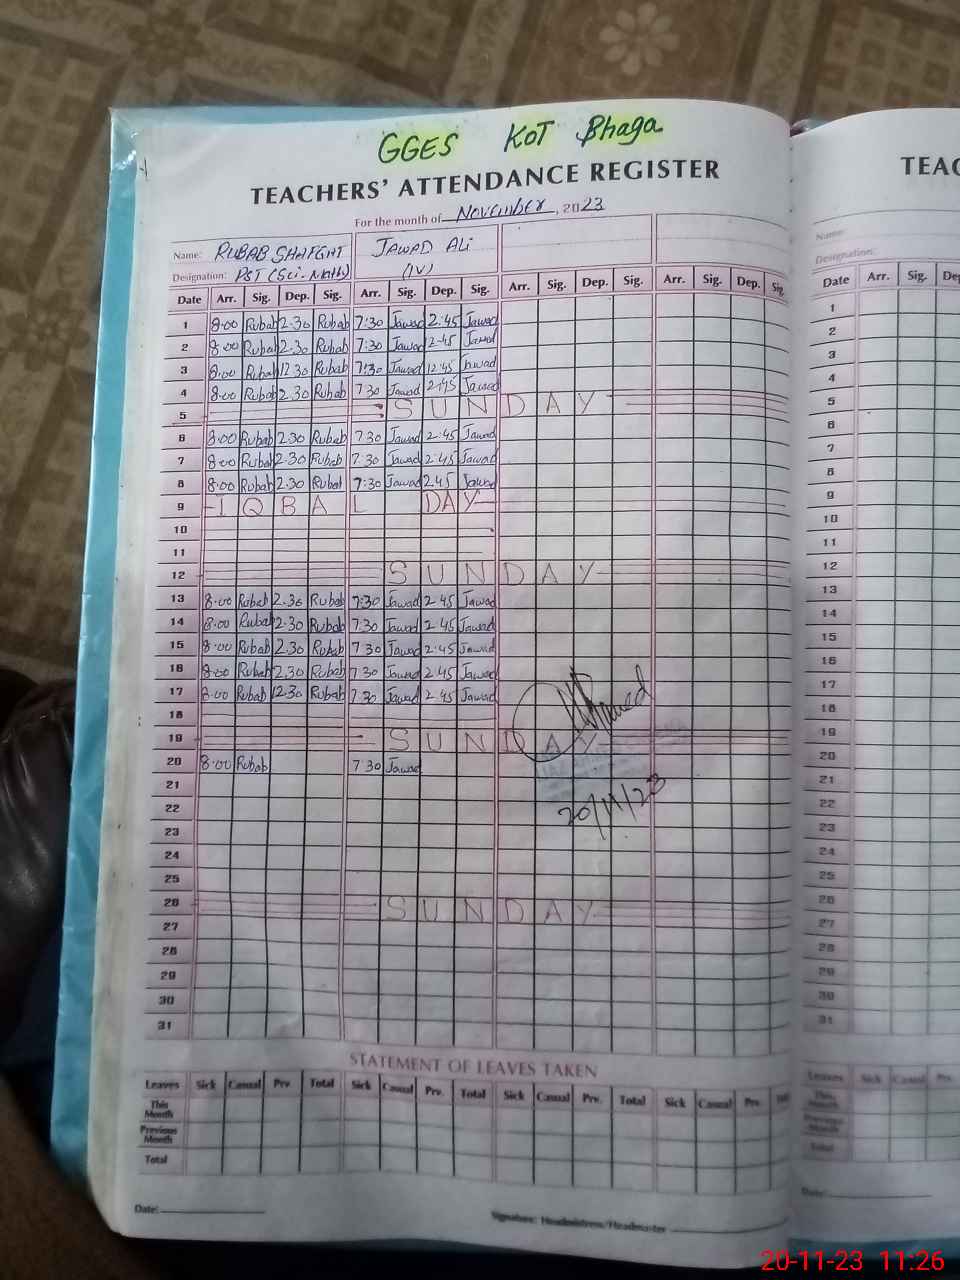 GGES KOT Bhaga
TEACHERS' ATTENDANCE REGISTER
For the month of November, 2023
Name: RUBAB SHAFGHT JAWAD ALi
Designation: PST (Sci-Math) (IV)
Date Arr. Sig. Dep. Sig. Arr. Sig. Dep. Sig. Arr. Sig. Dep. Sig. Arr. Sig. Dep. Sig.
1 8:00 Rubab 2.30 Rubab 7:30 Jawad 2:45 Jawad
2 8:00 Rubab 2.30 Rubab 7:30 Jawad 2:45 Jawad
3 8:00 Rubab 12.30 Rubab 7:30 Jawad 12:45 Jawad
4 8:00 Rubab 2.30 Rubab 7:30 Jawad 2:45 Jawad
5 SUNDAY
6 8:00 Rubab 2:30 Rubab 7:30 Jawad 2:45 Jawad
7 8:00 Rubab 2:30 Rubab 7:30 Jawad 2:45 Jawad
8 8:00 Rubab 2.30 Rubab 7:30 Jawad 2.45 Jawad
9 IQBAL DAY
10
11
12 SUNDAY
13 8:00 Rubab 2.30 Rubab 7:30 Jawad 2:45 Jawad
14 8:00 Rubab 2.30 Rubab 7:30 Jawad 2:45 Jawad
15 8:00 Rubab 2.30 Rubab 7:30 Jawad 2:45 Jawad
16 8:00 Rubab 2.30 Rubab 7:30 Jawad 2:45 Jawad
17 8:00 Rubab 12.30 Rubab 7:30 Jawad 2:45 Jawad
18
19 SUNDAY
20 8:00 Rubab 7:30 Jawad
20/11/23
21
22
23
24
25
26 SUNDAY
27
28
29
30
31
STATEMENT OF LEAVES TAKEN
Leaves Sick Casual Prv. Total Sick Casual Prv. Total Sick Casual Prv. Total Sick Casual Prv.
This Month
Previous Month
Total
Date:
Signature: Headmistress/Headmaster
TEAC
Name:
Designation:
Date Arr. Sig. Dep
1
2
3
4
5
6
7
8
9
10
11
12
13
14
15
16
17
18
19
20
21
22
23
24
25
26
27
28
29
30
31
Leaves Sick Casual
This Month
Previous Month
Total
Date:
20-11-23 11:26